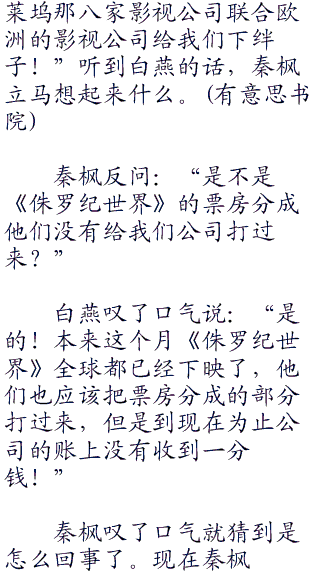 莱坞那八家影视公司联合欧
洲的影视公司给我们下绊
子！”听到白燕的话，秦枫
立马想起来什么。(有意思书
院)
秦枫反问：“是不是
《侏罗纪世界》的票房分成
他们没有给我们公司打过
来？”
白燕叹了口气说：“是
的！本来这个月《侏罗纪世
界》全球都已经下映了，他
们也应该把票房分成的部分
打过来，但是到现在为止公
司的账上没有收到一分
钱！”
秦枫叹了口气就猜到是
怎么回事了。现在秦枫